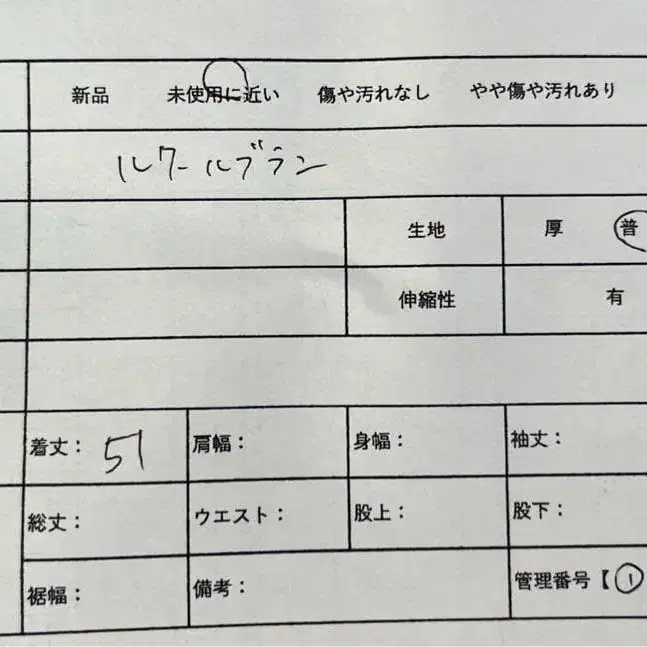 新品 未使用に近い 傷や汚れなし やや傷や汚れあり
ルクールブラン
生地 厚 普
伸縮性 有
着丈： 51 肩幅： 身幅： 袖丈：
総丈： ウエスト： 股上： 股下：
裾幅： 備考： 管理番号【①